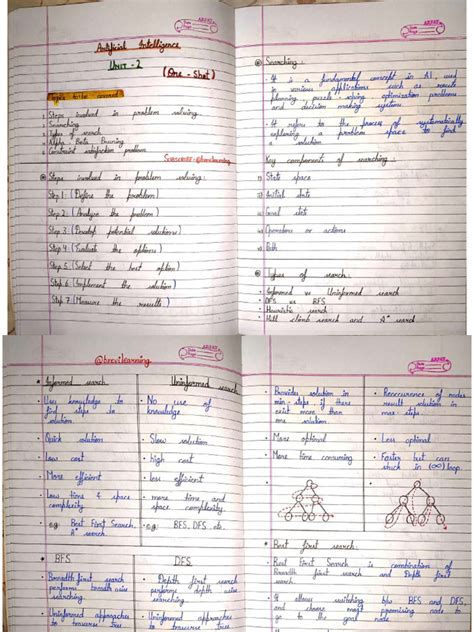 Artificial Intelligence
UNIT - 2
(One - Shot)
Topics to be covered
Steps involved in problem solving.
Searching
Types of search
Alpha Beta Pruning
Constraint satisfaction problem
Steps involved in problem solving:
Step 1: (Define the problem)
Step 2: (Analyze the problem)
Step 3: (potential solutions)
Step 4: (Evaluate the options)
Step 5: (Select the best option)
Step 6: (Implement the solution)
Step 7: (Measure the results)
Searching
It is a fundamental concept in AI, used
in various applications such as
planning, puzzle solving, optimization problems
and decision making system
It refers to the process of systematically
exploring a problem space to find
a solution
Key components of searching:
i) State space
ii) Initial state
iii) Goal state
iv) Operators or actions
v) Path
Types of search:
Informed vs Uninformed search
DFS vs BFS
Heuristic search
Hill climb search and A* search
@brevilearning
Informed search
Uses knowledge to
find steps to
solution
Quick solution
Low cost
More efficient
Low time & space
complexity
eg: Best First Search,
A* search
Uninformed search
No use of
knowledge
Slow solution
high cost
Less efficient
more time and
space complexity.
eg. BFS, DFS etc.
BFS
Breadth first search
performs breadth wise
searching
Uninformed approaches
to traverse tree
DFS
Depth first search
performs depth wise
searching
Uninformed approaches
to traverse tree
Provides solution in
min-steps if there
exist more than
one solution
More optimal
More time consuming
of nodes
result solution in
max steps
Less optimal
Faster but can
stuck in (∞) loop
Best first search:
Best First Search is combination of
Breadth first search and Depth first
search
It allows switching b/w BFS and DFS
and choose most promising node to